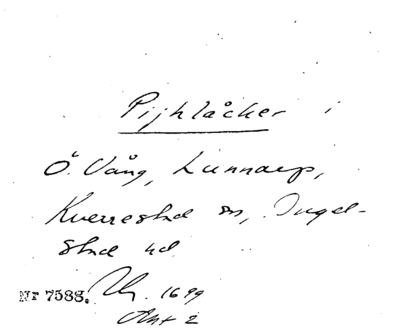 Pijhlåcker i
Ö. Vång, Lunnarp,
Kverrestad sn, Ingel-
stad hd
Nr 7583. 1699
Akt 2